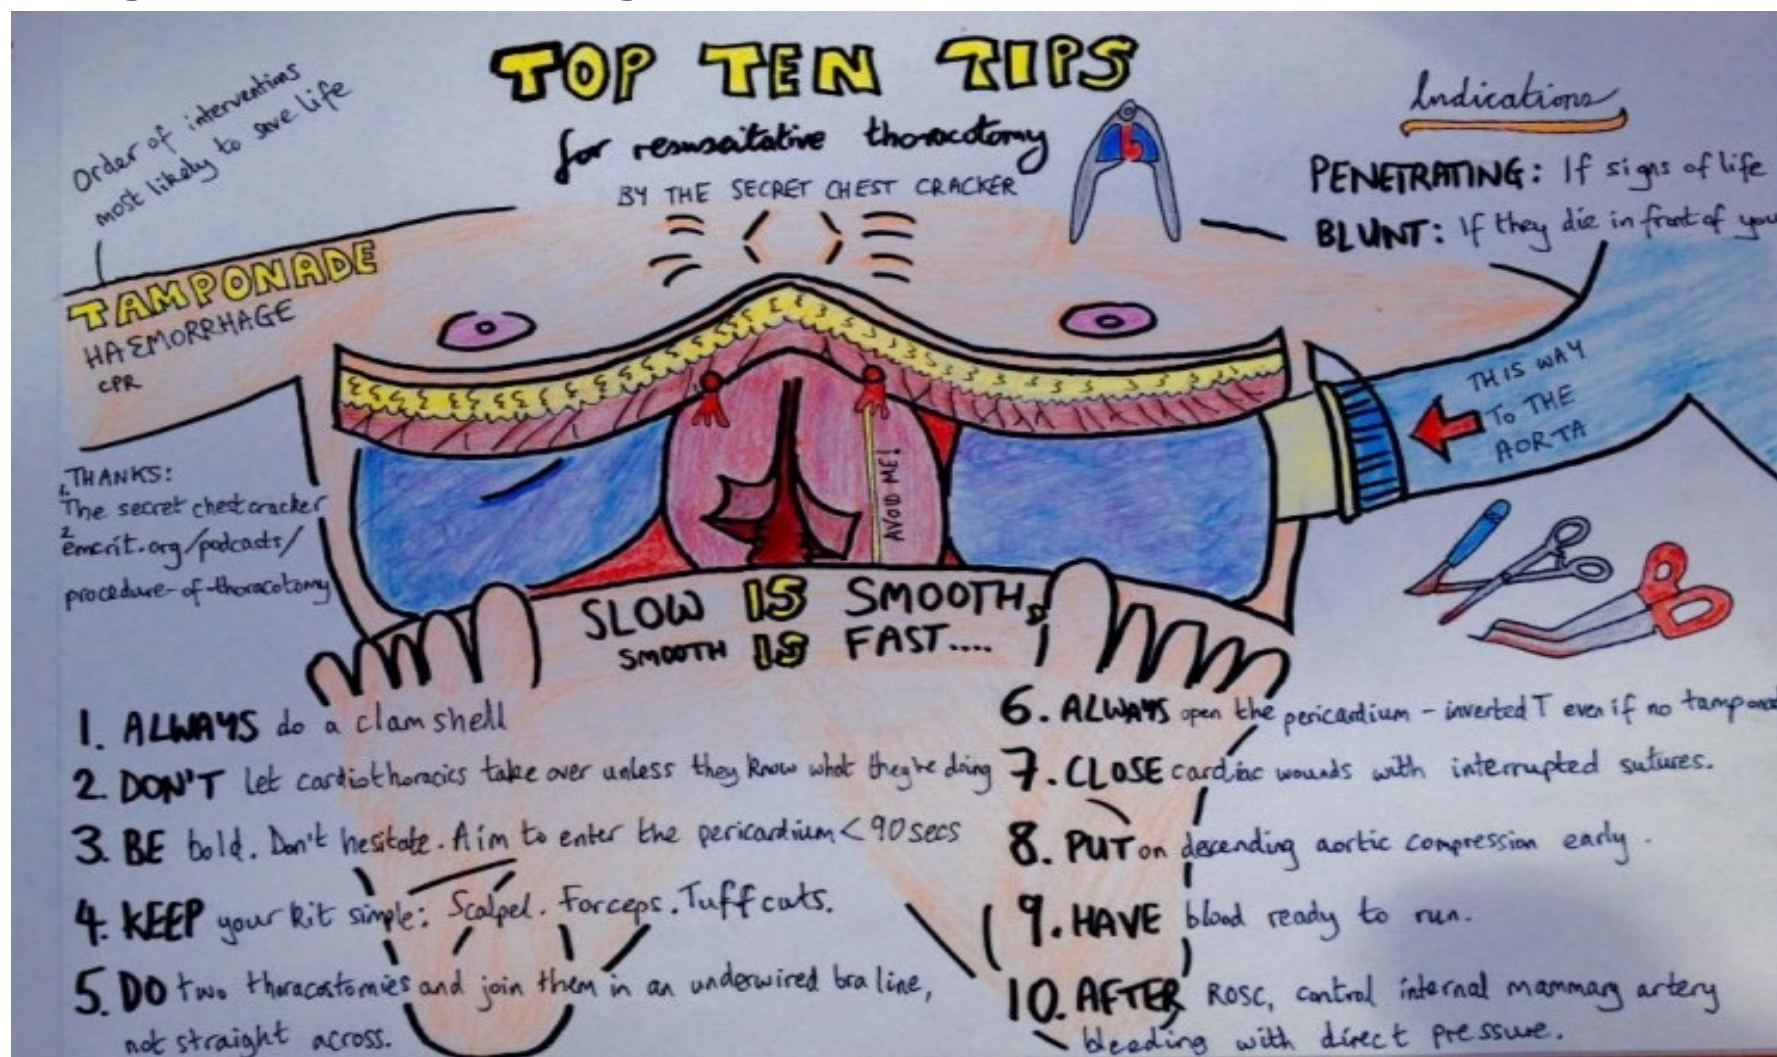 TOP TEN TIPS
for resusaitative thoracotomy
BY THE SECRET CHEST CRACKER
Order of interventions
most likely to save life
TAMPONADE
HAEMORRHAGE
CPR
Indications
PENETRATING: If signs of life
BLUNT: If they die in front of you
THIS WAY
TO THE
AORTA
AVOID ME!
THANKS:
1. The secret chest cracker
2 emcrit.org/podcasts/
procedure-of-thoracotomy
SLOW IS SMOOTH,
SMOOTH IS FAST....
1. ALWAYS do a clam shell
2. DON'T let cardiothoracics take over unless they know what they're doing
3. BE bold. Don't hesitate. Aim to enter the pericardium < 90 secs
4. KEEP your kit simple: Scalpel. Forceps. Tuff cuts.
5. DO two thoracostomies and join them in an underwired bra line,
not straight across.
6. ALWAYS open the pericardium - inverted T even if no
7. CLOSE cardiac wounds with interrupted sutures.
8. PUT on descending aortic compression early.
9. HAVE blood ready to run.
10. AFTER ROSC, control internal mammary artery
bleeding with direct pressure.